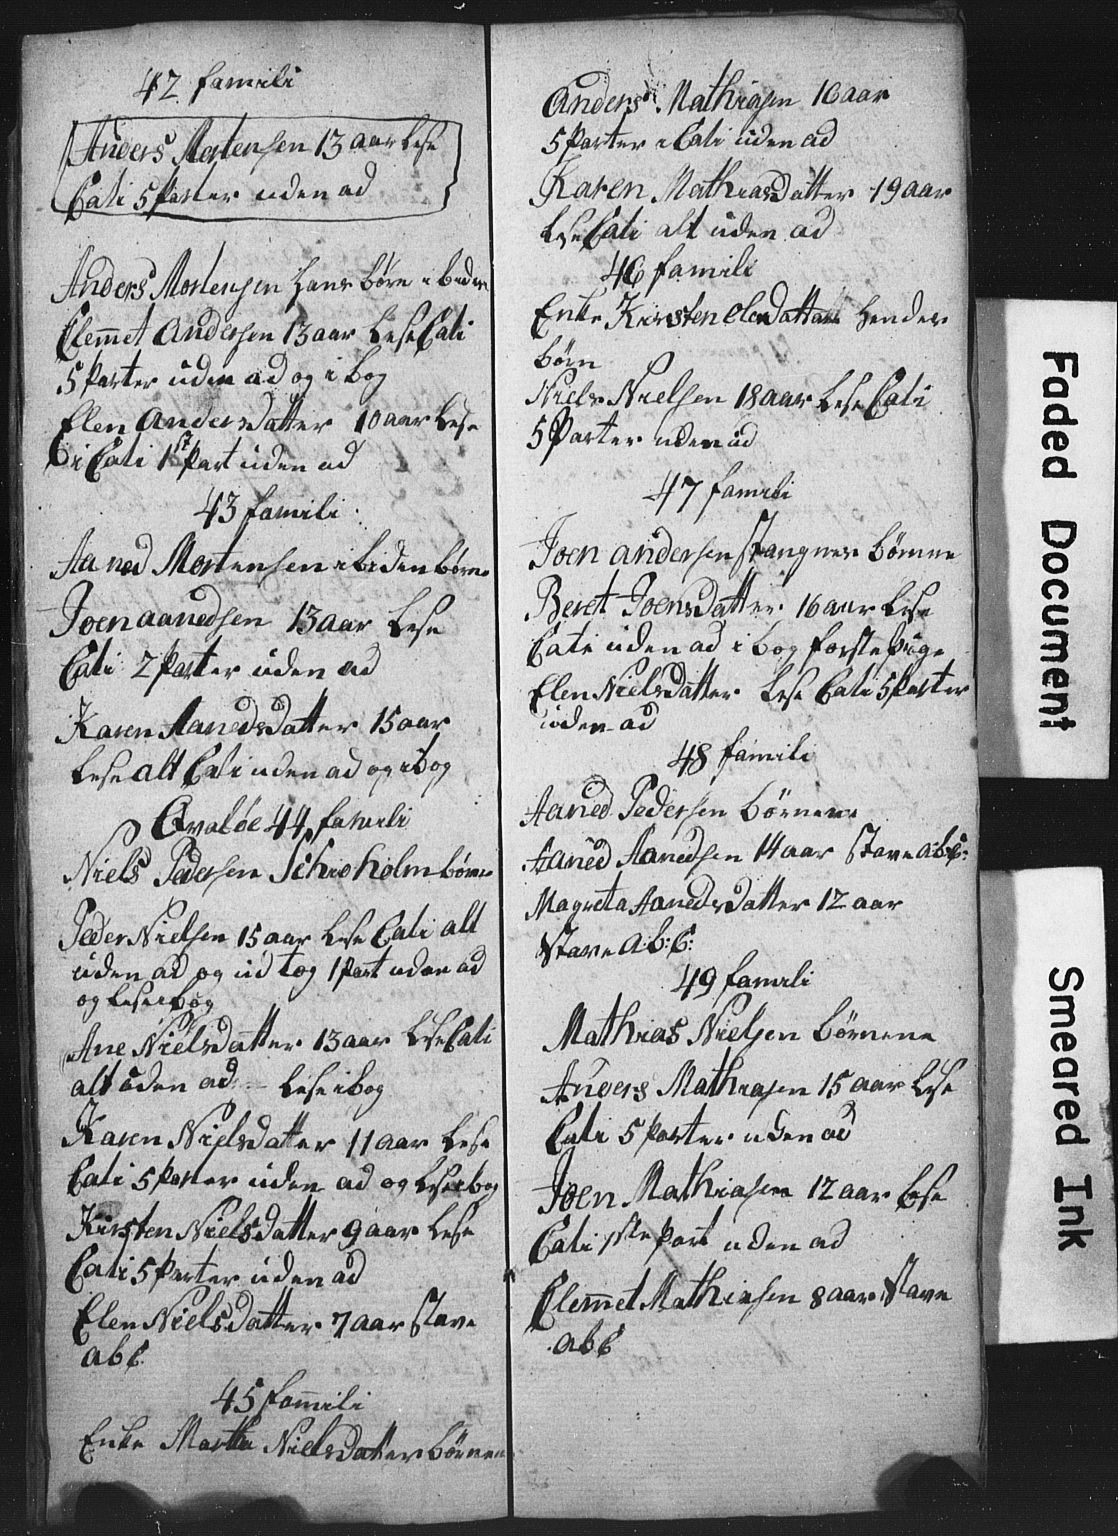 42 famili
Anders Mortensen 13 aar Lese
Cati 5 Parter uden ad
Anders Mortensen hans børn ibiden
Clem̅et Andersen 13 aar Lese Cati
5 Parter uden ad og i bog
Elen Andersdatter 10 aar Lese
i Cati 1st Part uden ad
43 famili
Aaned Mortensen ibiden børn
Joen aanedsen 13 aar Lese
Cati 2 Parter uden ad
Karen Aanedsdatter 15 aar
Lese alt Cati uden ad og i bog
Qvaløe 44 famili
Niels Pedersen Schieholm børn
Peder Nielsen 15 aar Lese Cati alt
uden ad og ud tog 1 Part uden ad
og Lese i bog
Ane Nielsdatter 13 aar Lese Cati
alt uden ad Lese i bog
Karen Nielsdatter 11 aar Lese
Cati 5 Parter uden ad og Lese i bog
Kirsten Nielsdatter 9 aar Lese
Cati 5 Parter uden ad
Elen Nielsdatter 7 aar Stave
abc
45 fam̅ili
Enke Martha Nielsdatter børnen
Anders Mathiasen 16 aar
5 Parter i Cati uden ad
Karen Mathiasdatter 19 aar
Lese Cati alt uden ad
46 famili
Enke Kirsten Olesdatter hendes
børn
Niels Nielsen 18 aar Lese Cati
5 Parter uden ad
47 famili
Joen andersen Stangnes børnne
Beret Joensdatter 16 aar Lese
Cati uden ad i bog forste Pige
Elen Nielsdatter Lese Cati 5 Parter
uden ad
48 famili
Aaned Pedersen børnene
Aaned Aanedsen 14 aar Stave a:b:c:
Magreta Aanedsdatter 12 aar
Stave a:b:c:
49 famili
Mathias Nielsen børnene
Anders Mathiasen 15 aar Lese
Cati 5 Parter uden ad
Joen Mathiasen 12 aar Lese
Cati 1ste Part uden ad
Clem̅et Mathiasen 8 aar Stave
abc
Faded Document
Smeared Ink